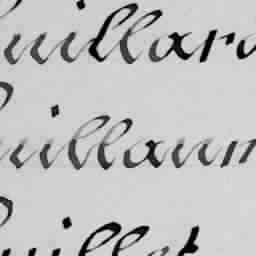 uillard
uillaum
uillet